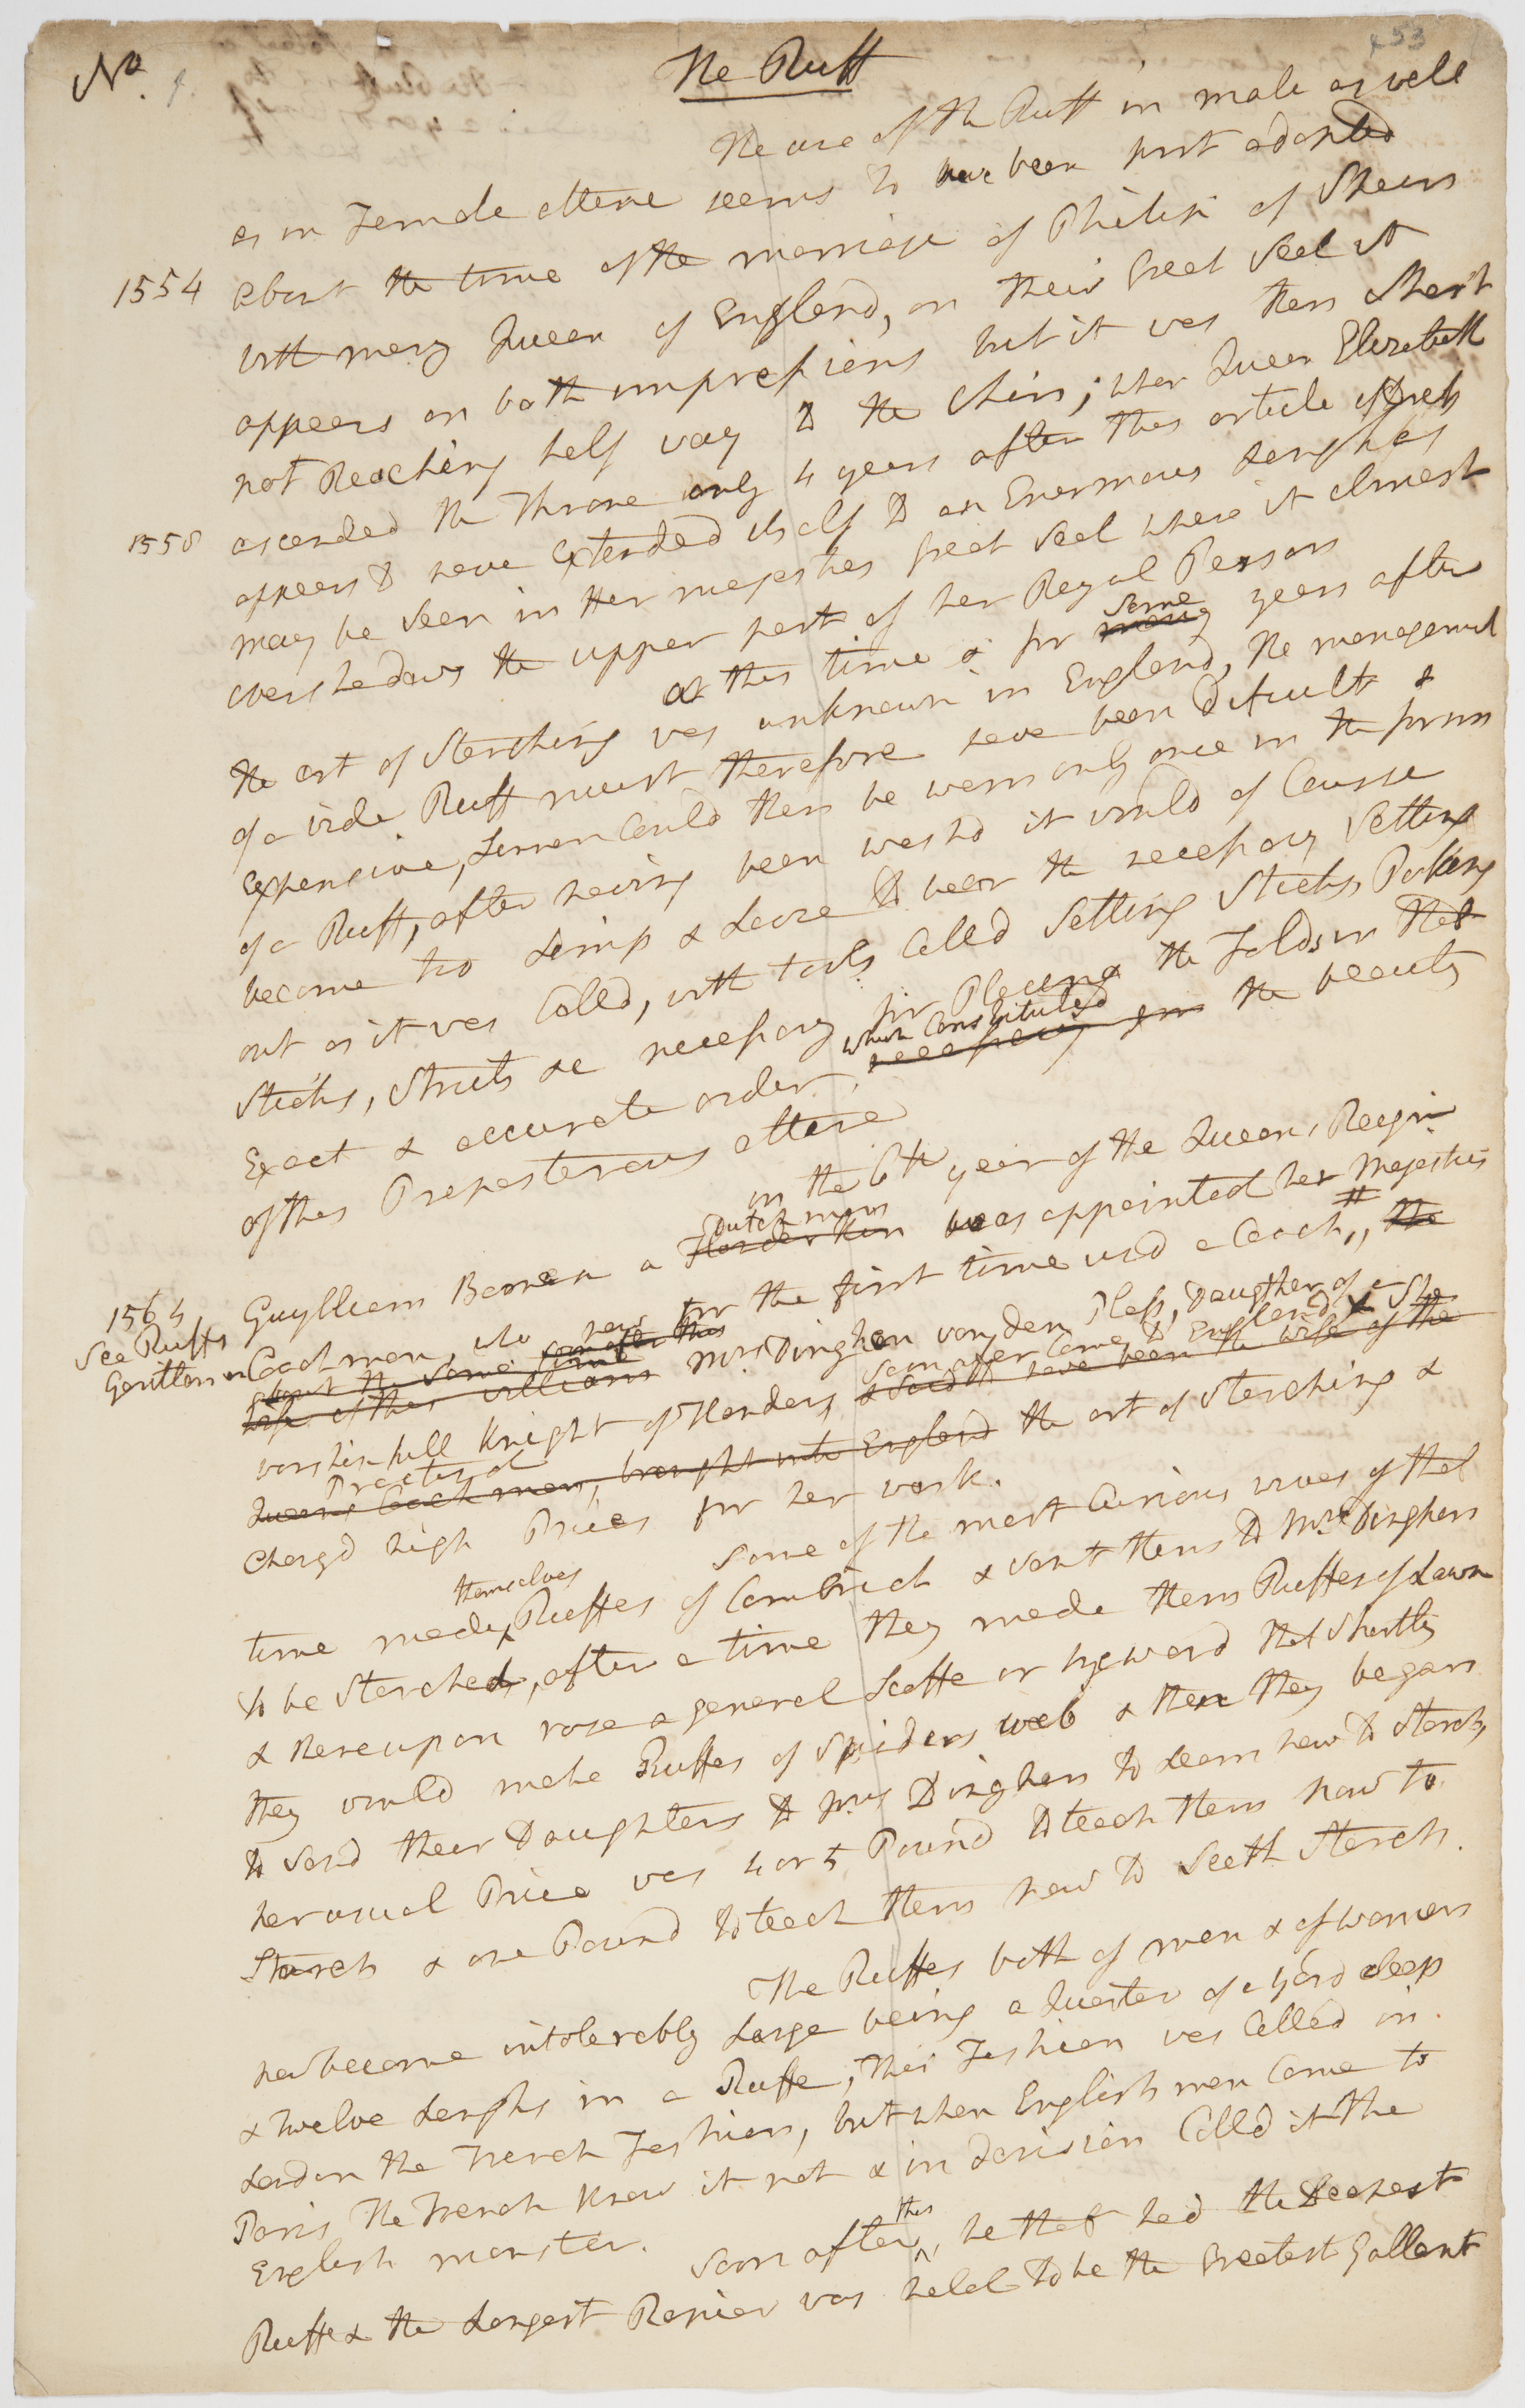 No. 1.
The Ruff
453
The use of the Ruff in male as well
as in Female attire seems to have been first adopted
1554 about the time of the marriage of Philip of Spain
with mary Queen of England, on their Great Seal it
appears on both impressions but it was then Short
not Reaching half way to the Chin; when Queen Elizabeth
1558 ascended the Throne only 4 years after this article of dress
appears to have Extended itself to an Enormous Length as
may be Seen in Her majesties great Seal where it almost
overshadows the upper part of her Royal Person
at this time & for many some years after
the art of Starching was unknown in England, The management
of a wide Ruff must therefore have been dificult &
Expensive, Linnen Could then be worn only once in the form
of a Ruff, after having been washd it would of Course
become too Limp & Loose to bear the necessary Setting
out as it was Calld, with tools Calld Setting Sticks, Poking
Sticks, Struts &c necessary for Placing the Folds in that
Exact & accurate order, necessary for which Constituted the beauty
of this Preposterous attire
in the 6th year of the Queens Reign
1564 Guylliam Boonen a Flanderkin Dutch man was appointed her Majesties
See Ruffs Gentlemen
Coachman, who now for the first time usd a Coach #, the
about the same time soon after this
wife of this william Mrs Dinghen van den Plass, Daughter of a
worshipfull Knight of Flanders, & Said to have been the wife of the soon after Came to England & She
Queens Coach man, brought into England Practised the art of Starching &
Chargd high Prices for her work.
Some of the most Curious wives of that
time made themselves Ruffes of Cambrick & sent them to Mrs Dinghen
to be Starched, after a time they made them Ruffes of Lawn
& thereupon rose a general Scoffe or byword that Shortly
they would make Ruffes of Spiders web & then they began
to Send their Daughters to Mrs Dinghen to Learn how to Starch,
her usual Price was 4 or 5 Pound to teach them how to
Starch & one Pound to teach them how to Seeth Starch.
The Ruffes both of men & of women
had become intolerably Large being a Quarter of a yard deep
& twelve Lengths in a Ruffe, This Fashion was Called in
London the French Fashion, but when English men Came to
Paris The French knew it not & in Derision Calld it the
English monster. Soon after this, he that had the Deepest
Ruffe & the Longest Rapier was held to be the Greatest Gallant